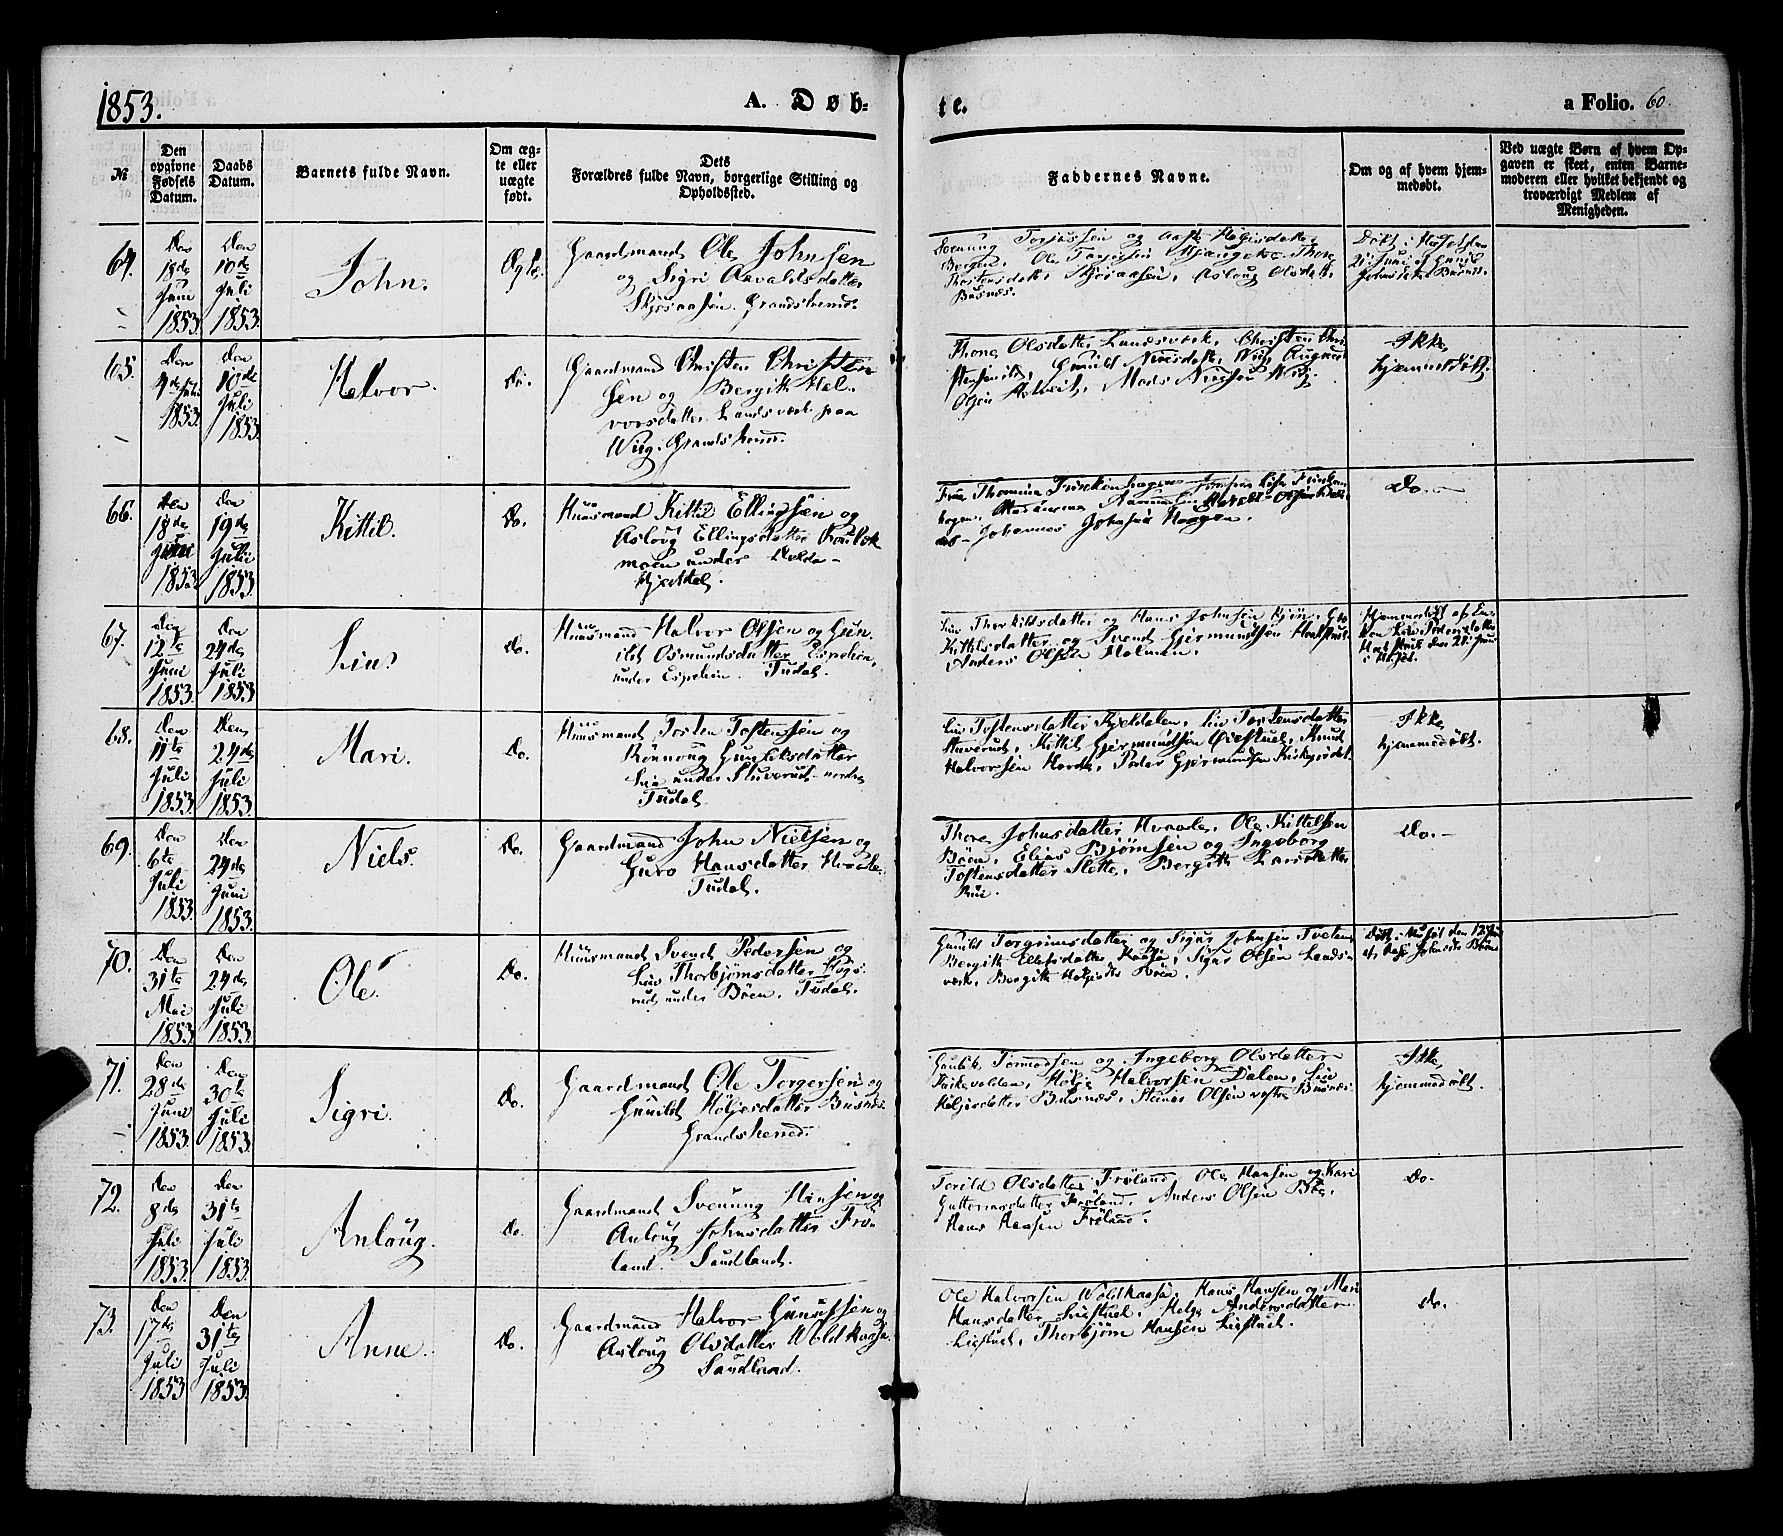 1853.
A. Døb-
te.
a Folio. 60.
№
Den
opgivne
Fødsels
Datum.
Daabs
Datum.
Barnets fulde Navn.
Om æg-
te eller
uægte
født.
Dets
Forældres fulde Navn, borgerlige Stilling og
Opholdssted.
Faddernes Navne.
Om og af hvem hjem-
medøbt.
Ved uægte Børn af hvem Op-
gaven er skeet, enten Barne-
moderen eller hvilket bekjendt og
troværdigt Medlem af
Menigheden.
64.
Den
18de
Juni
1853.
Den
10de
Juli
1853.
John.
Ægte.
Gaardmand Ole Johnsen
og Sigri Aavaldsdatter
Grandsherred.
og Aaste
Bergen, Ole
Aslaug Olsdatter
Busnæs.
Døbt i
21 Juni af Gunild
Johnsdatter Busnæs.
65.
Den
4de Juli
1853.
Den
10de
Juli
1853.
Halvor.
Do.
Gaardmand Christen Christen
sen og Bergit Hal-
vorsdatter Landsverk paa
Wiig. Grandsherred.
Thone Olsdatter Landsverk, Christen Chri
stensen Gunild Wiig,
Olsen Mads
Ikke
hjemmedøbt.
66.
Den
18de
Juni
1853.
Den
19de
Juli
1853.
Kittil.
Do.
Huusmand Kittil Ellingsen og
Aslaug Ellingsdatter
moen under
Hjertdal.
Frue Thomina
hagen.
Johannes Johnsen Haagen.
Do.
67.
Den
12te
Juni
1853.
Den
24de
Juli
1853.
Liv.
Do.
Huusmand Halvor Olsen og Gun-
ild Osmundsdatter Espelien,
under Espelien. Tudal.
Liv Thorkildsdatter og Hans Johnsen
Kittilsdatter og Svend Gjermundsen
Anders Olsen Holmen.
Hjemmedøbt af En-
den 21 Juni
68.
Den
11te
Juli
1853.
Den
24de
Juli
1853.
Mari.
Do.
Huusmand Tosten Tostensen og
Rønnoug Gunleksdatter
Lia under Stuverud nordre
Tudal.
Liv Tostensdatter Kjeldalen, Liv Tostensdatter
Stuverud, Kittil Gjermundsen Øiestuel, Knud
Halvorsen Hovde, Peder Gjermundsen
Ikke
hjemmedøbt.
69.
Den
6te
Juli
1853.
Den
24de
Juni
1853.
Niels.
Do.
Gaardmand John Nielsen og
Guro Hansdatter
Tudal.
Thone Johnsdatter Ole Kittelsen
Bøen, Elias Bjørnsen og Ingeborg
Tostensdatter Slette, Bergith Larsdatter
Do.
70.
Den
31te
Mai
1853.
Den
24de
Juli
1853.
Ole.
Do.
Huusmand Svend Pedersen og
Liv Thorbjørnsdatter
rud under Bøen. Tudal.
Gunild Torgrimsdatter og Sigur Johnsen Tveten
Bergith Sigur Olsen Lands-
verk, Bergith Bøen.
den 12 Juni
71.
Den
28de
Juni
1853.
Den
30te
Juli
1853.
Sigri.
Do.
Gaardmand Ole Torgersen og
Gunild Høljesdatter Busnæs.
Grandsherred.
Gunlik Tormodsen og Ingeborg Olsdatter
Kirkevolden, Hølje Halvorsen Dalen, Liv
Høljesdatter Busnæs, Steinar Olsen vestre Busnæs.
Ikke
hjemmedøbt.
72.
Den
8de
Juli
1853.
Den
31te
Juli
1853.
Anlaug.
Do.
Gaardmand Svenung Hansen og
Anlaug Johnsdatter Frø-
land. Saudland.
Torild Olsdatter Frøland, Ole Hansen og Kari
Guttormsdatter Frøland, Anders Olsen Bøe,
Hans Hansen Frøland.
Do.
73.
Den
17de
Juli
1853
Den
31te
Juli
1853.
Anne.
Do.
Gaardmand Halvor Gunulfsen og
Aslaug Olsdatter Woldkaasa.
Saudland.
Ole Halvorsen Woldkaasa, Hans Hansen og Mari
Hansdatter Liestuel, Helge Andersdatter
Liestuel, Thorbjørn Hansen Liestuel.
Do.